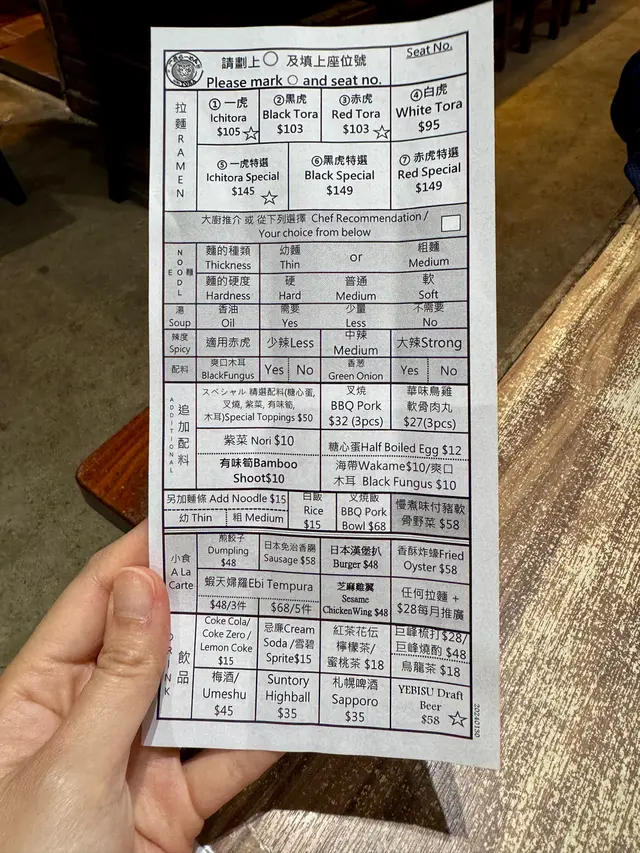 請劃上○ 及填上座位號
Please mark ○ and seat no.
Seat No.
拉麵 RAMEN
① 一虎
Ichitora
$105 ☆
②黑虎
Black Tora
$103
③赤虎
Red Tora
$103 ☆
④白虎
White Tora
$95
⑤ 一虎特選
Ichitora Special
$145 ☆
⑥黑虎特選
Black Special
$149
⑦ 赤虎特選
Red Special
$149
大廚推介 或 從下列選擇 Chef Recommendation /
Your choice from below
麵 NOODLE
麵的種類
Thickness
幼麵
Thin
or
粗麵
Medium
麵的硬度
Hardness
硬
Hard
普通
Medium
軟
Soft
湯
Soup
香油
Oil
需要
Yes
少量
Less
不需要
No
辣度
Spicy
適用赤虎
少辣Less
中辣
Medium
大辣Strong
配料
爽口木耳
BlackFungus
Yes
No
香葱
Green Onion
Yes
No
ADDITIONAL
追加配料
スペシャル 精選配料(糖心蛋,
叉燒, 紫菜, 有味筍,
木耳)Special Toppings $50
叉燒
BBQ Pork
$32 (3pcs)
華味鳥雞
軟骨肉丸
$27(3pcs)
紫菜 Nori $10
糖心蛋Half Boiled Egg $12
有味筍Bamboo
Shoot$10
海帶Wakame$10/爽口
木耳 Black Fungus $10
另加麵條 Add Noodle $15
幼 Thin
粗 Medium
白飯
Rice
$15
叉燒飯
BBQ Pork
Bowl $68
慢煮味付豬軟
骨野菜 $58
小食
A La
Carte
煎餃子
Dumpling
$48
日本免治香腸
Sausage $58
日本漢堡扒
Burger $48
香酥炸蠔Fried
Oyster $58
蝦天婦羅Ebi Tempura
$48/3件
$68/5件
芝麻雞翼
Sesame
ChickenWing $48
任何拉麵 +
$28每月推廣
DRINK
飲品
Coke Cola/
Coke Zero /
Lemon Coke
$15
忌廉Cream
Soda /雪碧
Sprite$15
紅茶花伝
檸檬茶/
蜜桃茶 $18
巨峰梳打$28/
巨峰燒酌 $48
烏龍茶 $18
梅酒/
Umeshu
$45
Suntory
Highball
$35
札幌啤酒
Sapporo
$35
YEBISU Draft
Beer
$58 ☆
20240130